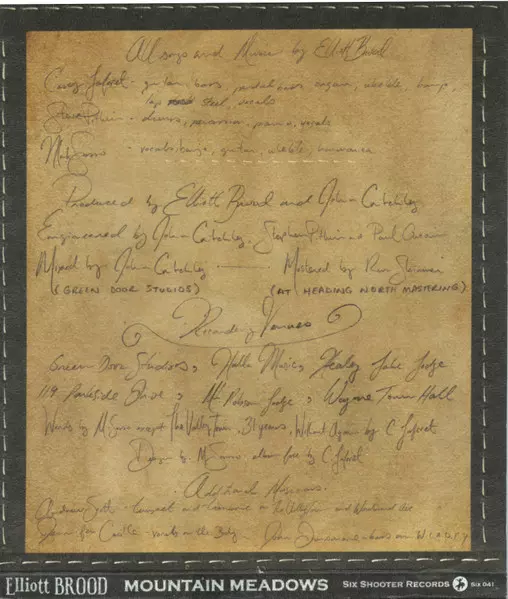 All songs and Music by Elliott Brood
Casey Laforet - guitar, bass, pedal bass, organ, ukulele, banjo,
lap steel, vocals
Stephen Pitkin - drums, percussion, piano, vocals
Mark Sasso - vocals, banjo, guitar, ukulele, harmonica
Produced by Elliott Brood and John Critchley
Engineered by John Critchley, Stephen Pitkin and Paul
Mixed by John Critchley Mastered by
(GREEN DOOR STUDIOS) (AT HEADING NORTH MASTERING)
Recording Venues
Green Door Studios, Halla Music, Healey Lake Lodge
119 Parkside Drive, Mt Robson Lodge, Wayne Town Hall
Words by M Sasso except The Valley Town, 31 years, Without Again by C Laforet
Design by M Sasso album by C Laforet
Additional Musicians
Andrew Scott - Trumpet and on The Valley Town and
Castle - vocals on the Body - John on W.I.A.G.T.Y
Elliott BROOD MOUNTAIN MEADOWS SIX SHOOTER RECORDS SIX 041